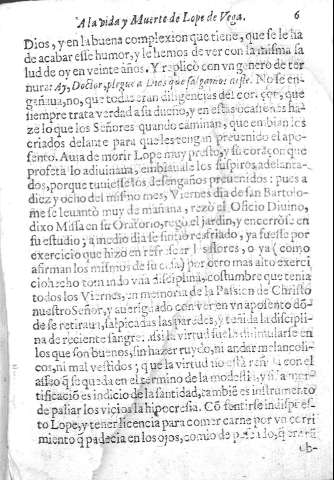 A la vida y Muerte de Lope de Vega. 6
Dios, y en la buena complexion que tiene, que se le ha
de acabar esse humor, y le hemos de ver con la misma sa
lud de oy en veinte años. Y replicò con vn genero de ter
nura: Ay, Doctor, plegue a Dios que salgamos deste. No se en-
gañaua, no, que todas eran diligencias del coraçon, que
siempre trata verdad a su dueño, y en estas ocasiones ha-
ze lo que los Señores quando caminan, que embian los
criados delante para que les tengan preuenido el apo-
sento. Auia de morir Lope muy presto, y su coraçon que
profeta lo adiuinaua, embiauale los suspiros adelanta-
dos, porque tuuiesse los desengaños preuenidos: pues a
diez y ocho del mismo mes, Viernes dia de san Bartolo-
me se leuantò muy de mañana, rezò el Oficio Diuino,
dixo Missa en su Oratorio, regò el jardin, y encerròse en
su estudio; a medio dia se sintio resfriado, ya fuesse por
exercicio que hizo en refrescar las flores, o ya (como
afirman los mismos de su casa) por otro mas alto exerci
cio hecho tomando vna disciplina, costumbre que tenia
todos los Viernes, en memoria de la Passion de Christo
nuestro Señor, y aueriguado con ver en vn aposento dõ-
de se retiraua, salpicadas las paredes, y teñida la discipli-
na de reciente sangre: assi la virtud suele dissimularse en
los que son buenos, sin hazer ruydo, ni andar melancoli-
cos, ni mal vestidos; que la virtud no està reñida con el
asseo q̃ se queda en el termino de la modestia, y si la mor
tificaciõ es indicio de la santidad, tambiẽ es instrumento
de paliar los vicios la hipocresia. Cõ sentirse indispues-
to Lope, y tener licencia para comer carne por vn corri
miento q̃ padecia en los ojos, comio de pescado, q̃ era